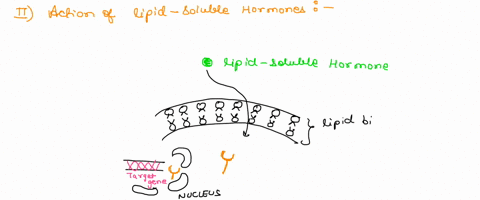 II) Action of lipid-soluble Hormones:-
lipid-soluble Hormone
lipid bi
Target
gene
NUCLEUS